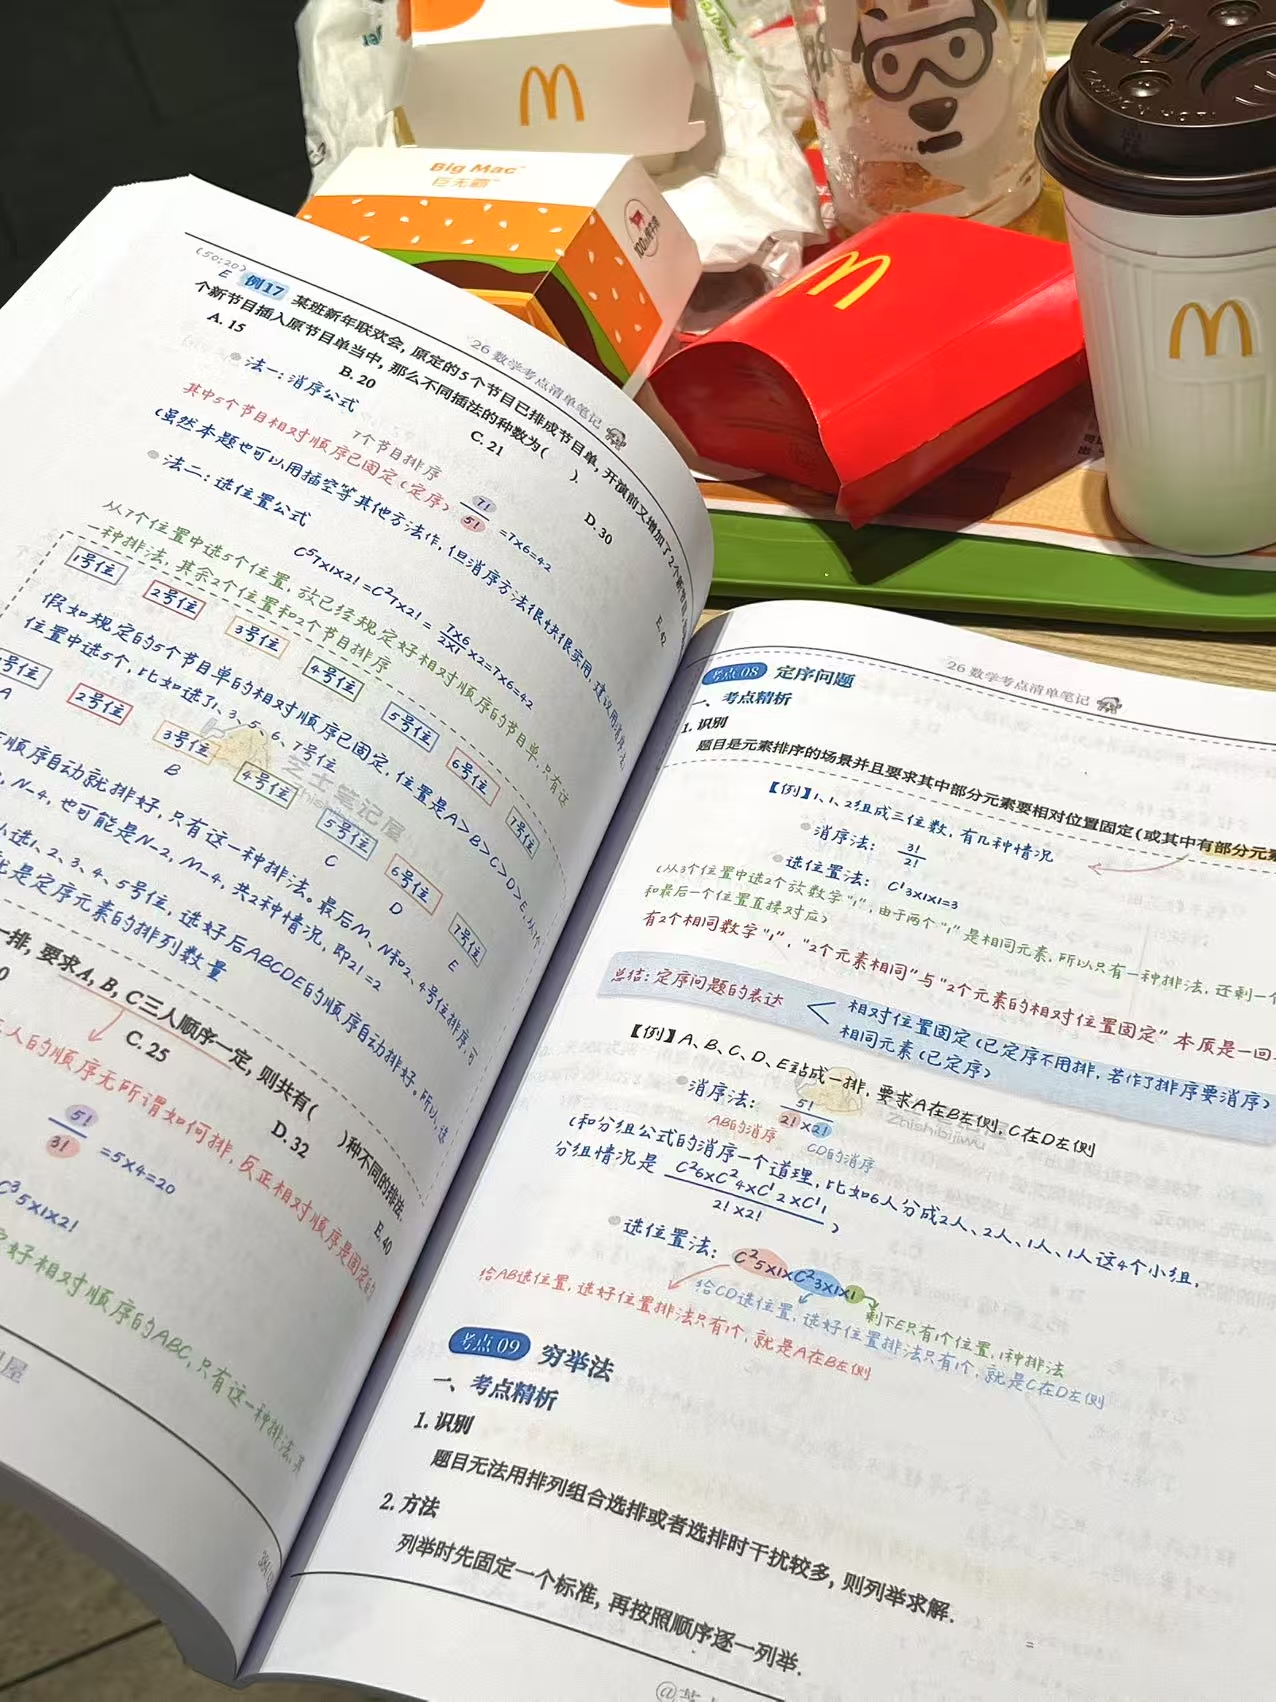 M
Big Mac™
巨无霸™
M
M
26 数学考点清单笔记
(50:20)
E 例17 某班新年联欢会, 原定的5个节目已排成节目单, 开演前又增加了2个新节目,
个新节目插入原节目单当中, 那么不同插法的种数为( ).
A. 15 B. 20 C. 21 D. 30 E. 42
法一:消序公式
7个节目排序
其中5个节目相对顺序已固定(定序) 7!/5! =7×6=42
(虽然本题也可以用插空等其他方法作, 但消序方法很快很实用, 建议用消序法
法二:选位置公式
C⁵7×1×2!=C²7×2!= 7×6/2×1 ×2=7×6=42
从7个位置中选5个位置, 放已经规定好相对顺序的节目单, 只有这
一种排法, 其余2个位置和2个节目排序
1号位 2号位 3号位 4号位 5号位 6号位 7号位
假如规定的5个节目单的相对顺序已固定, 位置是A>B>C>D>E, 从7个
位置中选5个, 比如选了1、3、5、6、7号位
号位 2号位 3号位 4号位 5号位 6号位 7号位
A B C D E
顺序自动就排好, 只有这一种排法。最后M、N和2、4号位排序, 可
N-4, 也可能是N-2, M-4, 共2种情况, 即2!=2
选1、2、3、4、5号位, 选好后ABCDE的顺序自动排好。所以, 该
就是定序元素的排列数量
一排, 要求A, B, C三人顺序一定, 则共有( )种不同的排法.
0 C. 25 D. 32 E. 40
三人的顺序无所谓如何排, 反正相对顺序是固定的
5!/3! =5×4=20
C³5×1×2!
好相对顺序的ABC, 只有这一种排法, 其
屋
26 数学考点清单笔记
考点 08 定序问题
一、考点精析
1. 识别
题目是元素排序的场景并且要求其中部分元素要相对位置固定(或其中有部分元素
【例】1、1、2组成三位数, 有几种情况
消序法: 3!/2!
选位置法: C¹3×1×1=3
(从3个位置中选2个放数字"1", 由于两个"1"是相同元素, 所以只有一种排法, 还剩一个
和最后一个位置直接对应)
有2个相同数字"1", "2个元素相同"与"2个元素的相对位置固定"本质是一回
总结:定序问题的表达 < 相对位置固定(已定序不用排, 若作了排序要消序)
相同元素(已定序)
【例】A、B、C、D、E站成一排, 要求A在B左侧, C在D左侧
消序法: 5!/2!×2!
AB的消序 CD的消序
(和分组公式的消序一个道理, 比如6人分成2人、2人、1人、1人这4个小组,
分组情况是 C²6×C²4×C¹2×C¹1/2!×2! )
Zhishibijiwu
选位置法: C²5×1×C²3×1×1
给AB选位置, 选好位置排法只有1个, 就是A在B左侧
给CD选位置, 选好位置排法只有1个, 就是C在D左侧
剩下E只有1个位置, 1种排法
考点 09 穷举法
一、考点精析
1. 识别
题目无法用排列组合选排或者选排时干扰较多, 则列举求解.
2. 方法
列举时先固定一个标准, 再按照顺序逐一列举.
@芝士